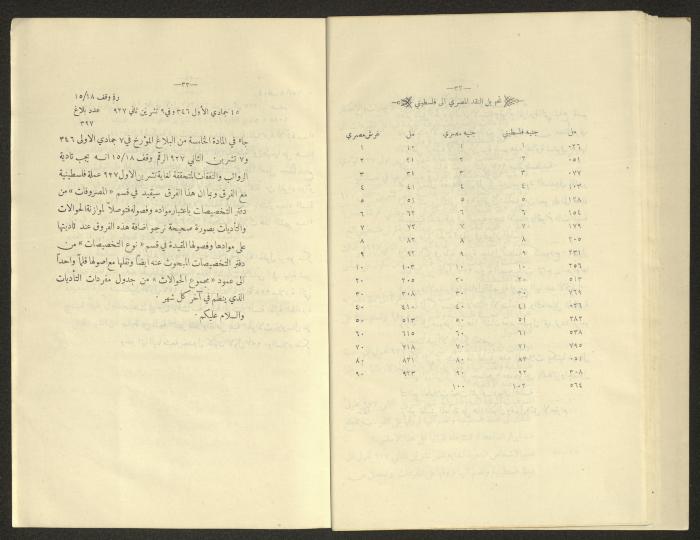 —٣٢—
تحويل النقد المصري الى فلسطيني
مل جنيه فلسطيني جنيه مصري مل غرش مصري
٠٢٦ ١ ١ ١٠ ١
٠٥١ ٢ ٢ ٢١ ٢
٠٧٧ ٣ ٣ ٣١ ٣
١٠٣ ٤ ٤ ٤١ ٤
١٢٨ ٥ ٥ ٥١ ٥
١٥٤ ٦ ٦ ٦٢ ٦
١٧٩ ٧ ٧ ٧٢ ٧
٢٠٥ ٨ ٨ ٨٢ ٨
٢٣١ ٩ ٩ ٩٢ ٩
٢٥٦ ١٠ ١٠ ١٠٣ ١٠
٥١٣ ٢٠ ٢٠ ٢٠٥ ٢٠
٧٦٩ ٣٠ ٣٠ ٣٠٨ ٣٠
٠٢٦ ٤١ ٤٠ ٤١٠ ٤٠
٢٨٢ ٥١ ٥٠ ٥١٣ ٥٠
٥٣٨ ٦١ ٦٠ ٦١٥ ٦٠
٧٩٥ ٧١ ٧٠ ٧١٨ ٧٠
٠٥١ ٨٢ ٨٠ ٨٢١ ٨٠
٣٠٨ ٩٢ ٩٠ ٩٢٣ ٩٠
٥٦٤ ١٠٢ ١٠٠
—٣٣—
رقم وقف ١٥/١٨
١٥ جمادي الأول ٣٤٦ وفي ٩ تشرين ثاني ٩٢٧ عدد بلاغ
٣٩٧
جاء في المادة الخامسة من البلاغ المؤرخ في ٧ جمادى الاولى ٣٤٦
و٧ تشرين الثاني ٩٢٧ الرقم وقف ١٥/١٨ انه يجب تادية
الرواتب والنفقات المتحققة لغاية تشرين الاول ٩٢٧ عملة فلسطينية
مع الفرق وبما ان هذا الفرق سيقيد في قسم «المصروفات» من
دفتر التخصيصات باعتبار مواده وفصوله فتوصلاً لموازنة الحوالات
والتأديات بصورة صحيحة نرجو اضافة هذه الفروق عند تأديتها
على موادها وفصولها المقيدة في قسم «نوع التخصيصات» من
دفتر التخصيصات المبحوث عنه ايضاً ونقلها مع اصولها قلماً واحداً
الى عمود «مجموع الحوالات» من جدول مفردات التأديات
الذي ينظم في آخر كل شهر .
والسلام عليكم .